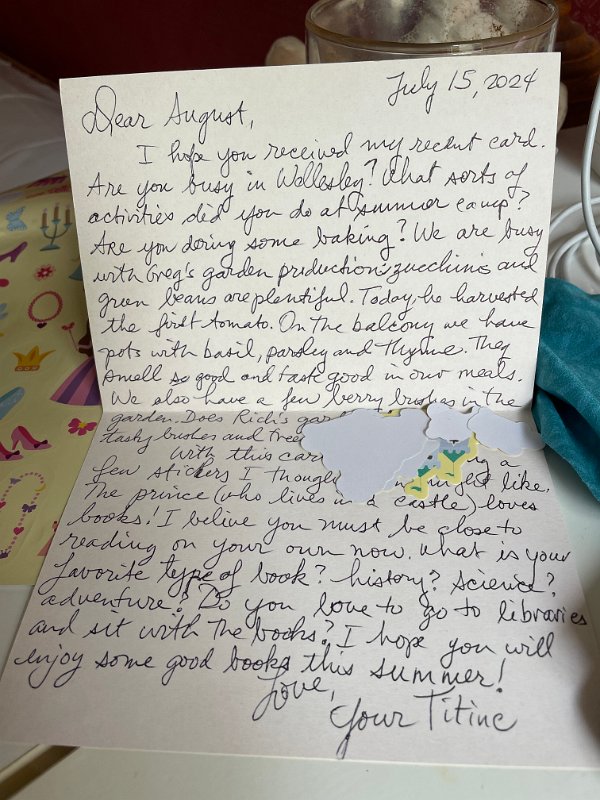 July 15, 2024
Dear August,
I hope you received my recent card.
Are you busy in Wellesley? What sorts of
activities did you do at summer camp?
Are you doing some baking? We are busy
with Greg's garden production; zucchini and
green beans are plentiful. Today, he harvested
the first tomato. On the balcony we have
pots with basil, parsley and thyme. They
smell so good and taste good in our meals.
We also have a few berry bushes in the
garden. Does Rich's
tasty bushes and
With this
few stickers I might like.
The prince (who lives in a castle) loves
books! I belive you must be close to
reading on your own now. What is your
favorite type of book? history? science?
adventure? Do you love to go to libraries
and sit with the books? I hope you will
enjoy some good books this summer!
Love,
Your Titine